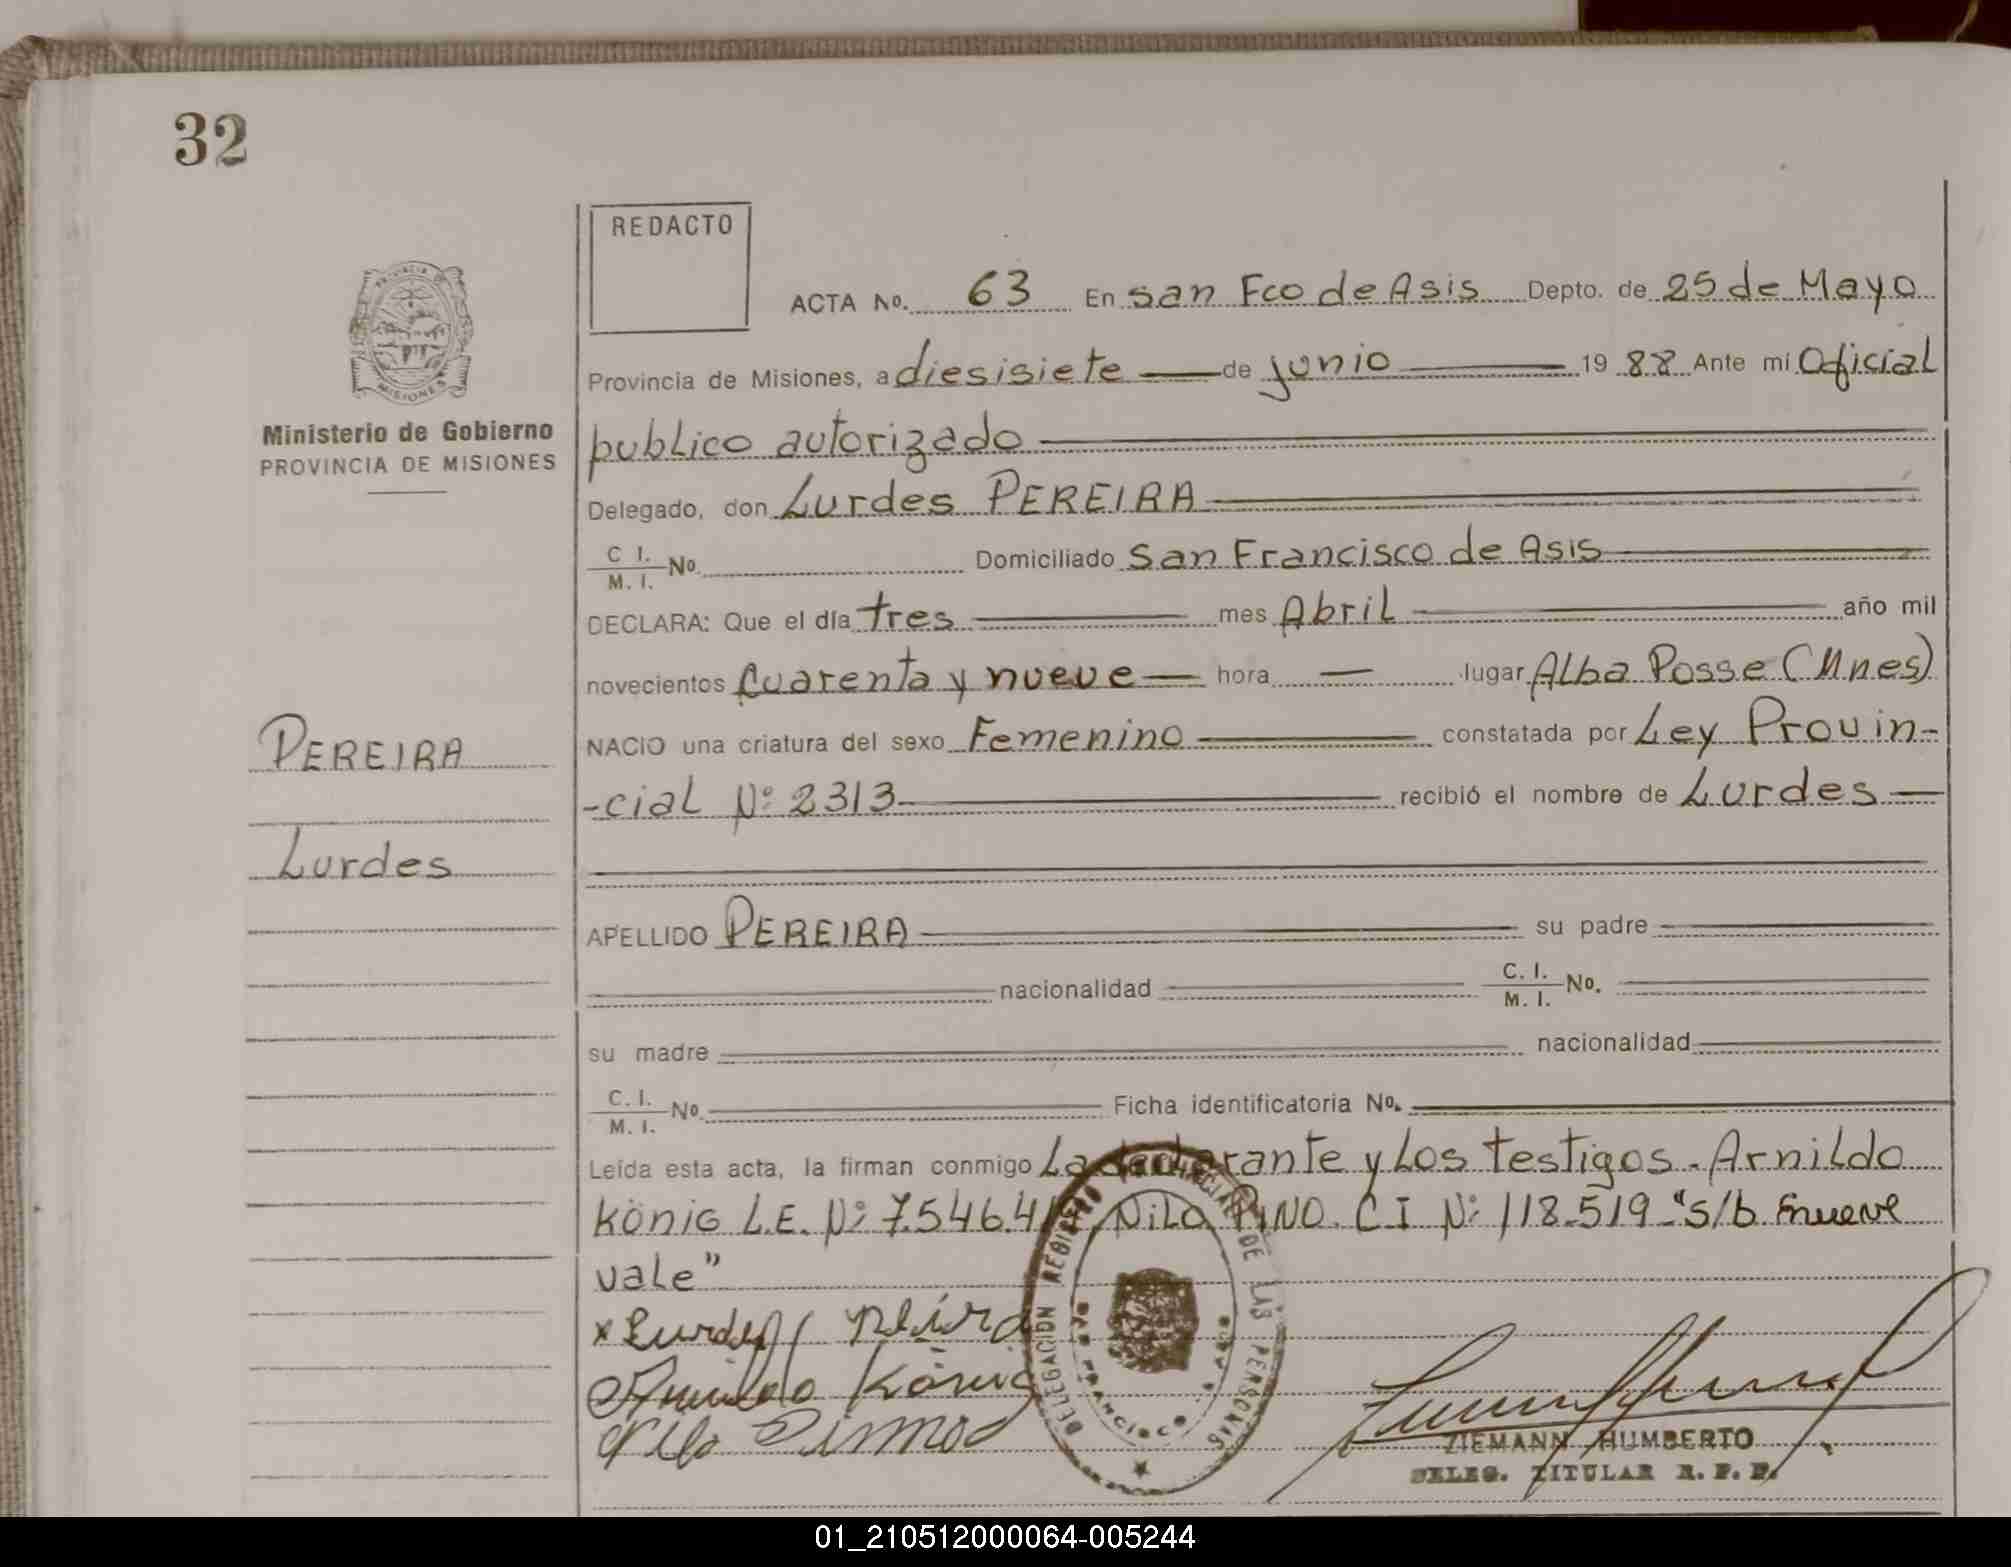 32
REDACTO
PROVINCIA DE
MISIONES
ACTA No. 63 En San Fco de Asis Depto. de 25 de Mayo
Provincia de Misiones, a diesisiete de junio 1988 Ante mi Oficial
publico autorizado
Ministerio de Gobierno
PROVINCIA DE MISIONES
Delegado, don Lurdes PEREIRA
C I. M. I. No. Domiciliado San Francisco de Asis
DECLARA: Que el día tres mes Abril año mil
novecientos Cuarenta y nueve — hora — lugar Alba Posse (Mnes)
NACIO una criatura del sexo Femenino constatada por Ley Provin-
-cial Nº 2313 recibió el nombre de Lurdes —
PEREIRA
Lurdes
APELLIDO PEREIRA su padre
nacionalidad C. I. M. I. No.
su madre nacionalidad
C. I. M. I. No. Ficha identificatoria No.
Leída esta acta, la firman conmigo La declarante y Los testigos. Arnildo
König L.E. Nº 7.546.4 Nilo PINO. C I Nº 118.519 "s/b nueve
vale"
x Lurdes
Arnildo König
Nilo
DELEGACION REGISTRO PROVINCIAL DE LAS PERSONAS
FRANCISCO
ZIEMANN HUMBERTO
DELEG. TITULAR R. P. P.
01_210512000064-005244